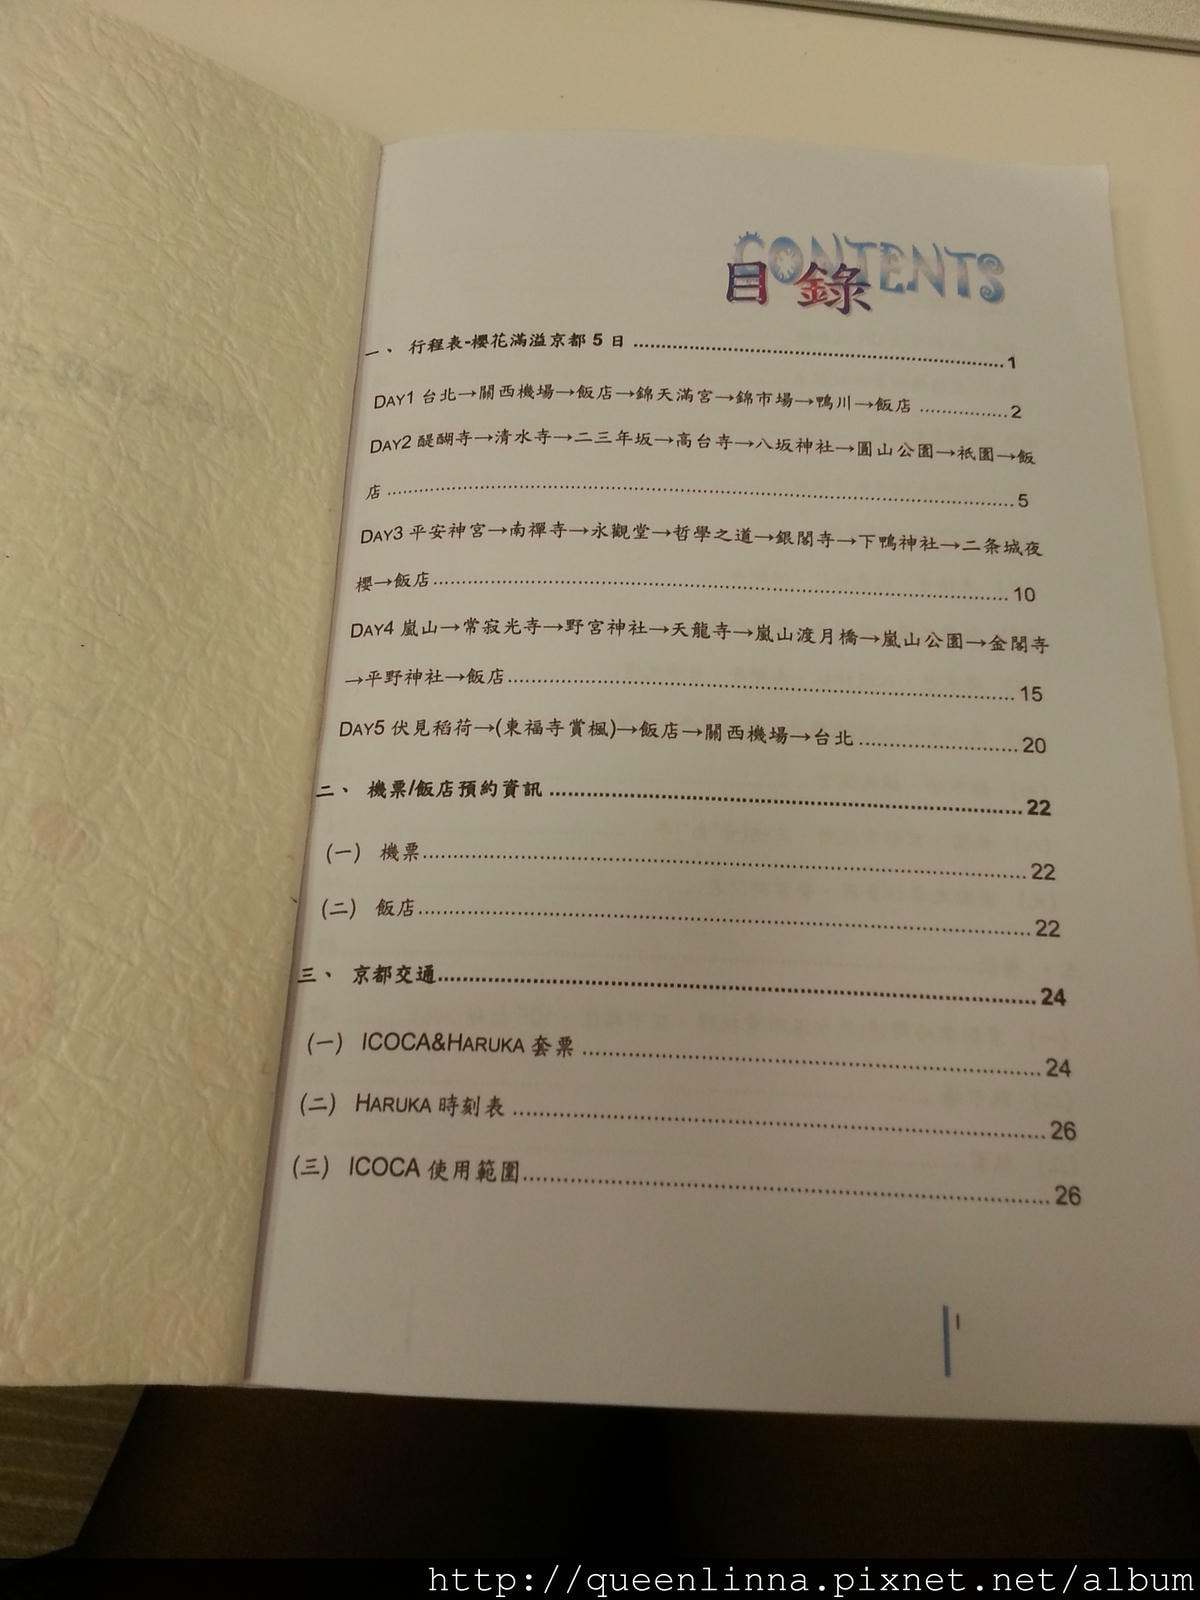 CONTENTS
目錄
一、 行程表-櫻花滿溢京都 5 日 ........ 1
DAY1 台北→關西機場→飯店→錦天滿宮→錦市場→鴨川→飯店 ........ 2
DAY2 醍醐寺→清水寺→二三年坂→高台寺→八坂神社→圓山公園→祇園→飯
店 ........ 5
DAY3 平安神宮→南禪寺→永觀堂→哲學之道→銀閣寺→下鴨神社→二条城夜
櫻→飯店 ........ 10
DAY4 嵐山→常寂光寺→野宮神社→天龍寺→嵐山渡月橋→嵐山公園→金閣寺
→平野神社→飯店 ........ 15
DAY5 伏見稻荷→(東福寺賞楓)→飯店→關西機場→台北 ........ 20
二、 機票/飯店預約資訊 ........ 22
(一) 機票 ........ 22
(二) 飯店 ........ 22
三、 京都交通 ........ 24
(一) ICOCA&HARUKA 套票 ........ 24
(二) HARUKA 時刻表 ........ 26
(三) ICOCA 使用範圍 ........ 26
I
http://queenlinna.pixnet.net/album